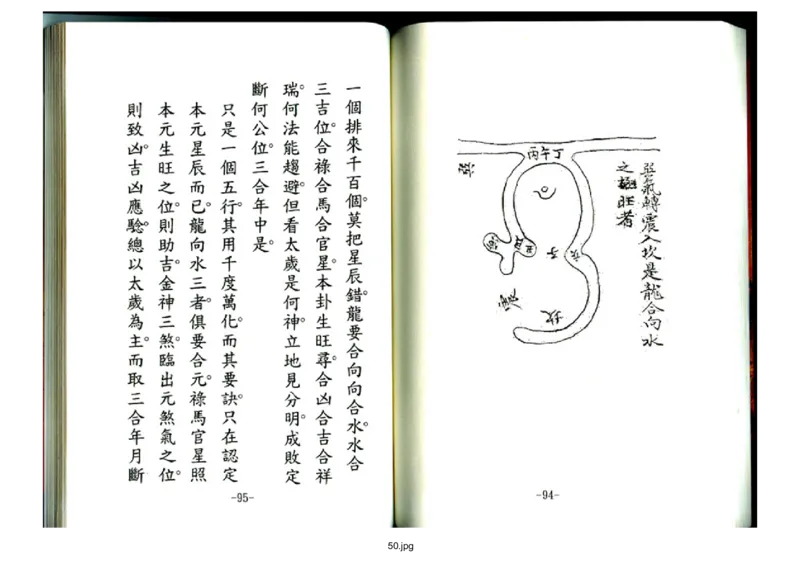 巽氣轉震入坎是龍合向水
之旺者
丙午丁
子
坎
-94-
一個排來千百個。莫把星辰錯。龍要合向向合水。水合
三吉位。合祿合馬合官星。本卦生旺尋。合凶合吉合祥
瑞。何法能趨避。但看太歲是何神。立地見分明。成敗定
斷何公位。三合年中是。
只是一個五行。其用千度萬化。而其要訣。只在認定
本元星辰而已。龍向水三者。俱要合元。祿馬官星照
本元生旺之位。則助吉。金神三煞。臨出元煞氣之位。
則致凶。吉凶應驗。總以太歲為主。而取三合年月斷
-95-
50.jpg